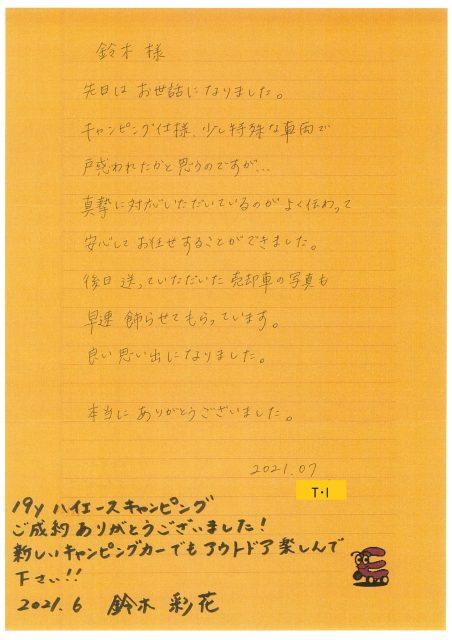 鈴木 様
先日は お世話になりました。
キャンピング仕様、少し特殊な車両で
戸惑われたかと思うのですが…
真摯に対応いただいているのが よく伝わって
安心して お任せすることができました。
後日 送っていただいた 売却車の写真も
早速 飾らせてもらっています。
良い思い出になりました。
本当に ありがとうございました。
2021.07
T・I
19y ハイエースキャンピング
ご成約 ありがとうございました!
新しいキャンピングカーでも アウトドア 楽しんで
下さい!!
2021.6 鈴木 彩花